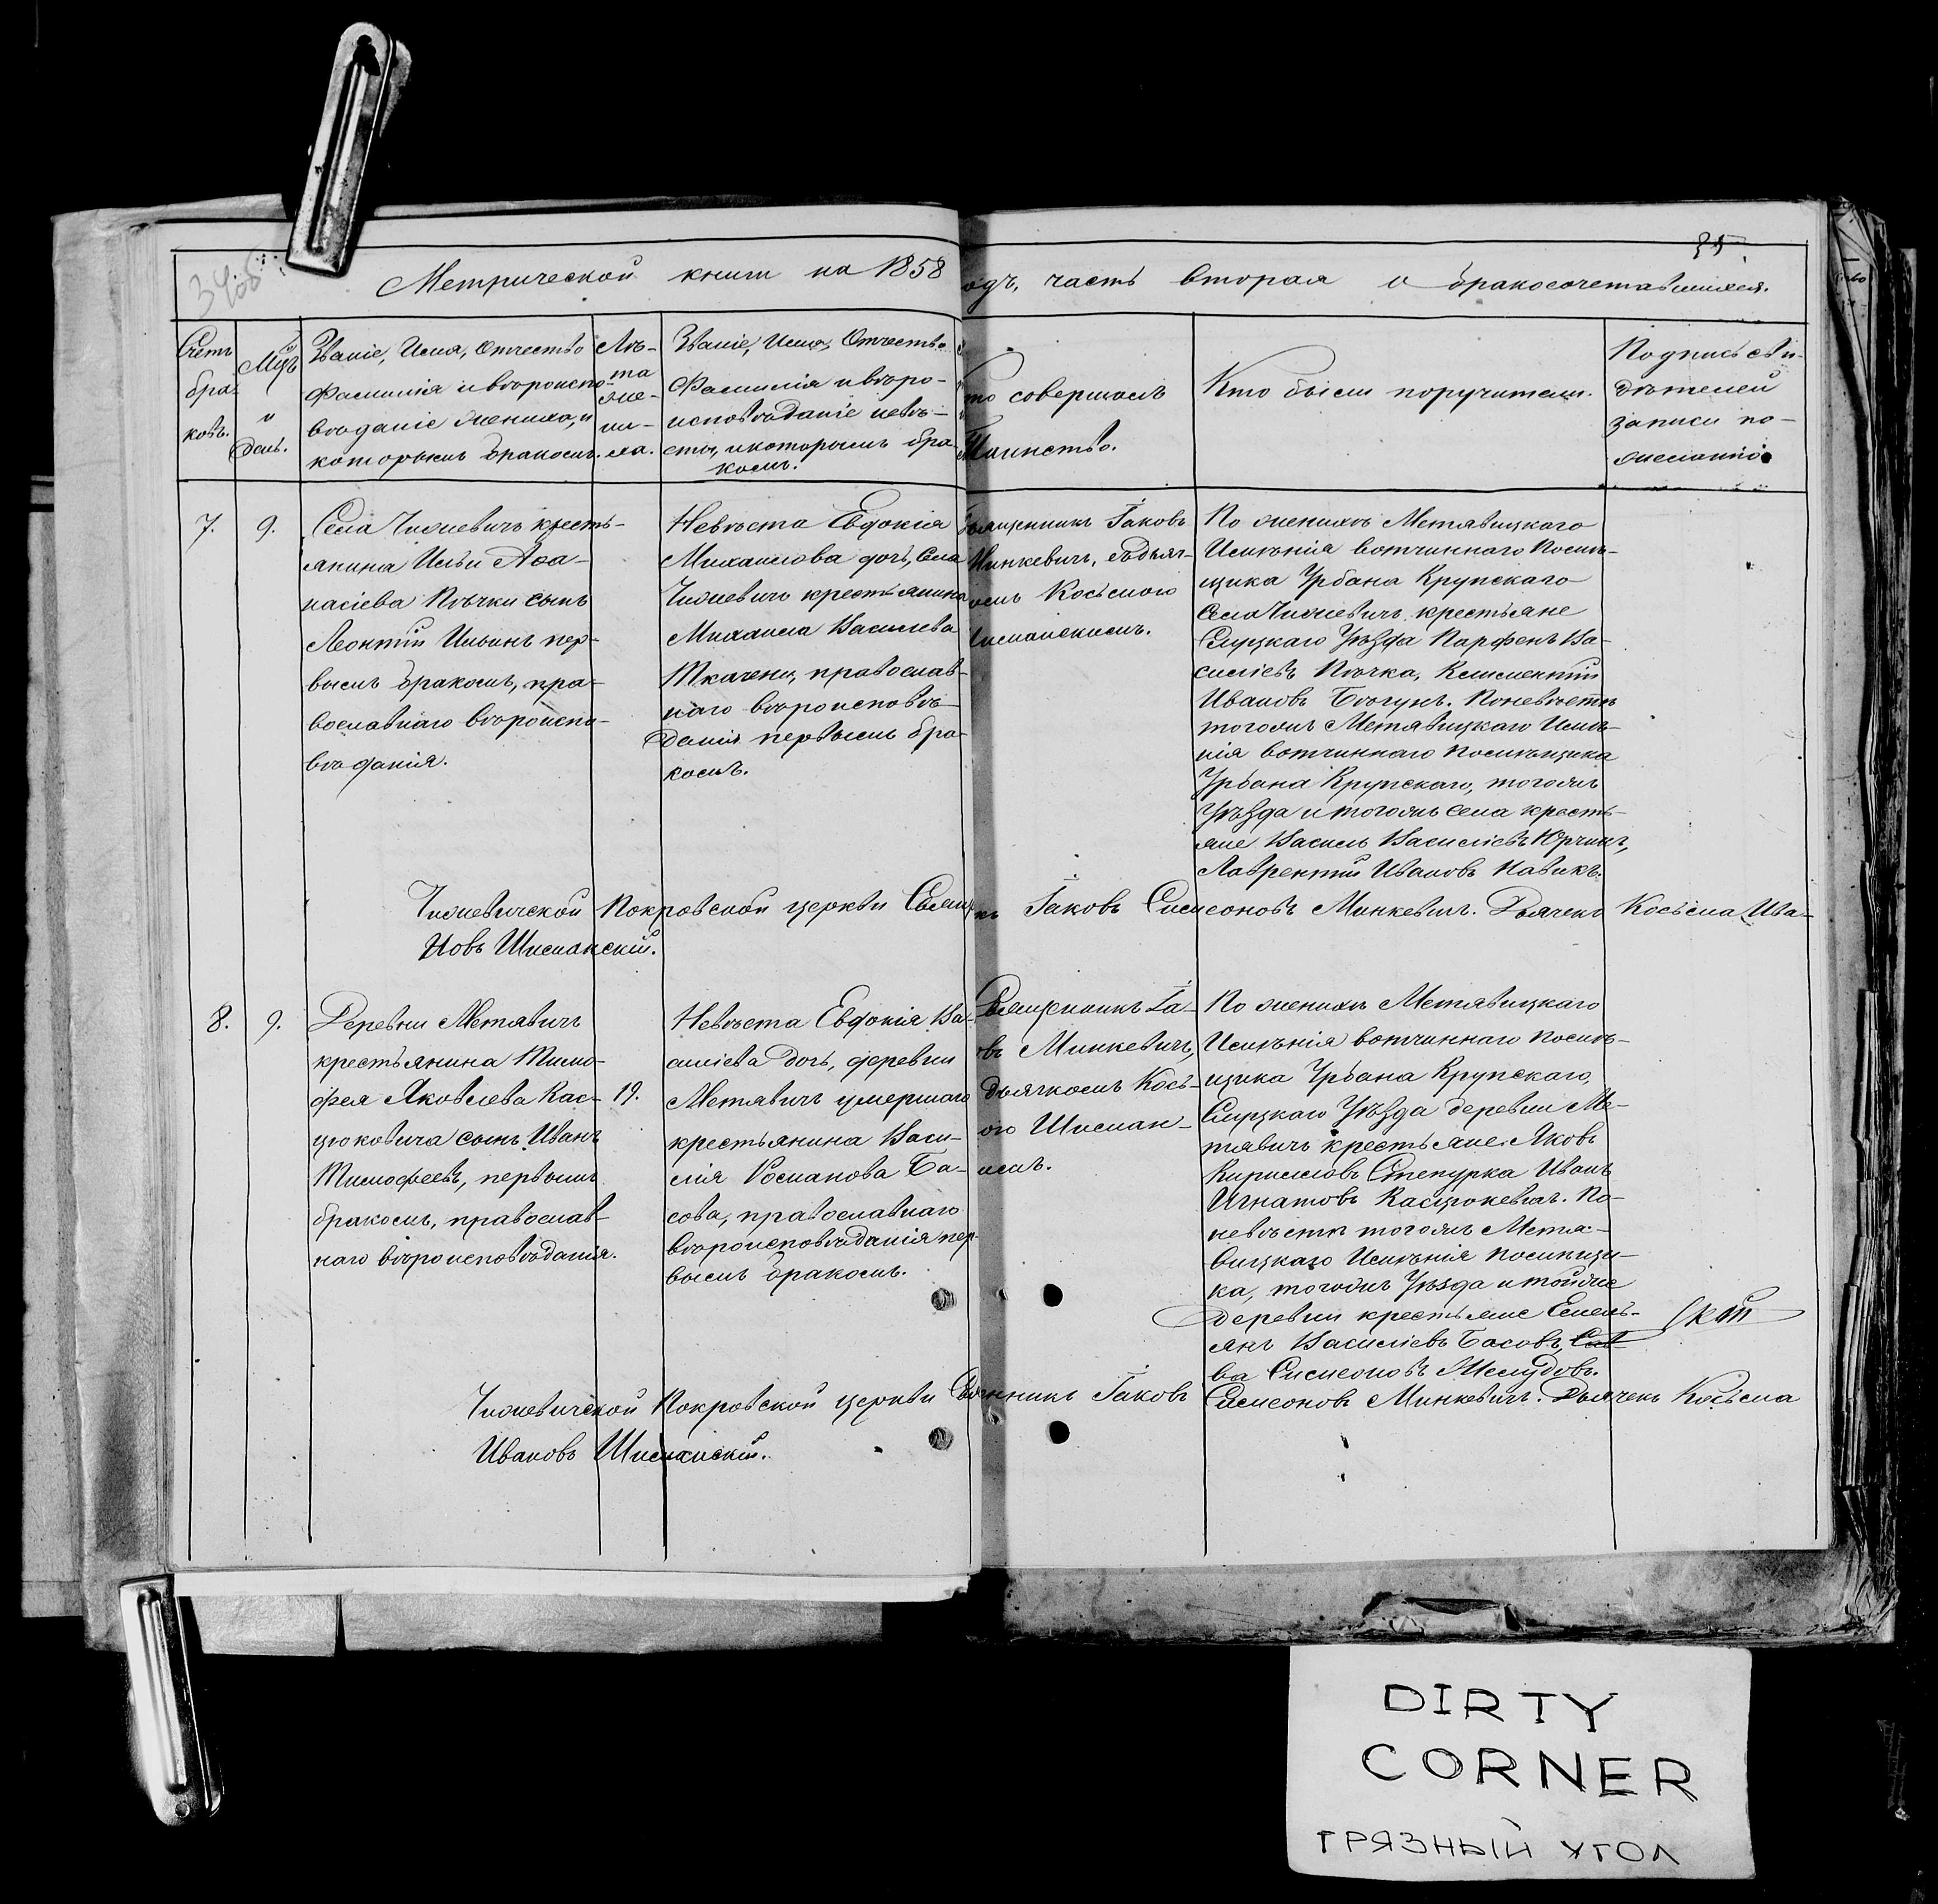 35.
Метрической книги на 1858
одъ, часть вторая о бракосочетавшихся.
Счетъ
бра-
ковъ.
Мцъ
и
день.
Званіе, Имя, Отчество
Фамилія и вѣроиспо-
вѣданіе жениха, и
которымъ бракомъ.
Лѣ-
та
же-
ни-
ха.
Званіе, Имя, Отчество
Фамилія и вѣро-
исповѣданіе невѣ-
сты, и которымъ бра-
комъ.
то совершалъ
Таинство.
Кто были поручители.
Подпись сви-
дѣтелей
записи по-
желанію
7.
9.
Села Чижевичъ кресть-
янина Ильи Аѳа-
насіева Пѣчки сынъ
Леонтій Ильинъ пер-
вымъ бракомъ, пра-
вославнаго вѣроиспо-
вѣданія.
Невѣста Евдокія
Михаилова дочь, Села
Чижевичъ крестьянина
Михаила Василіева
Ткачени, православ-
наго вѣроисповѣ-
данія первымъ бра-
комъ.
Священникъ Іаковъ
Минкевичъ, съ дьяч-
комъ Косьмою
Шиманскимъ.
По женихѣ Метявицкаго
Имѣнія вотчиннаго Помѣ-
щика Урбана Крупскаго
села Чижевичъ крестьяне
Слуцкаго Уѣзда Парфенъ Ва-
силіевъ Пѣчка, Климентій
Ивановъ Бѣгунъ. По невѣстѣ
тогожъ Метявицкаго Имѣ-
нія вотчиннаго помѣщика
Урбана Крупскаго, тогожъ
Уѣзда и тогожъ села кресть-
яне Василь Василіевъ Юрчикъ,
Лаврентій Ивановъ Навикъ.
Чижевичской Покровской церкви Священникъ Іаковъ Симеоновъ Минкевичъ. Дьячекъ Косьма Ива-
новъ Шиманскій.
8.
9.
Деревни Метявичъ
крестьянина Тимо-
фея Яковлева Кас-
цюковича сынъ Иванъ
Тимофеевъ, первымъ
бракомъ, православ-
наго вѣроисповѣданія.
19.
Невѣста Евдокія Ва-
силіева дочь, деревни
Метявичъ умершаго
крестьянина Васи-
лія Романова Ба-
сова, православнаго
вѣроисповѣданія пер-
вымъ бракомъ.
Священникъ Іа-
овъ Минкевичъ,
дьячкомъ Кось-
ою Шиман-
имъ.
По женихѣ Метявицкаго
Имѣнія вотчиннаго помѣ-
щика Урбана Крупскаго,
Слуцкаго Уѣзда деревни Ме-
тявичъ крестьяне Яковъ
Кирилловъ Степурка Иванъ
Игнатовъ Касцюкевичъ. По
невѣстѣ тогожъ Метя-
вицкаго Имѣнія помѣщи-
ка, тогожъ Уѣзда и тойже
деревни крестьяне Емель-
янъ Василіевъ Басовъ, Сав-
ва Симеоновъ Желудовъ.
Чижевичской Покровской церкви Священникъ Іаковъ Симеоновъ Минкевичъ. Дьячекъ Косьма
Ивановъ Шиманскій.
DIRTY
CORNER
ГРЯЗНЫЙ УГОЛ